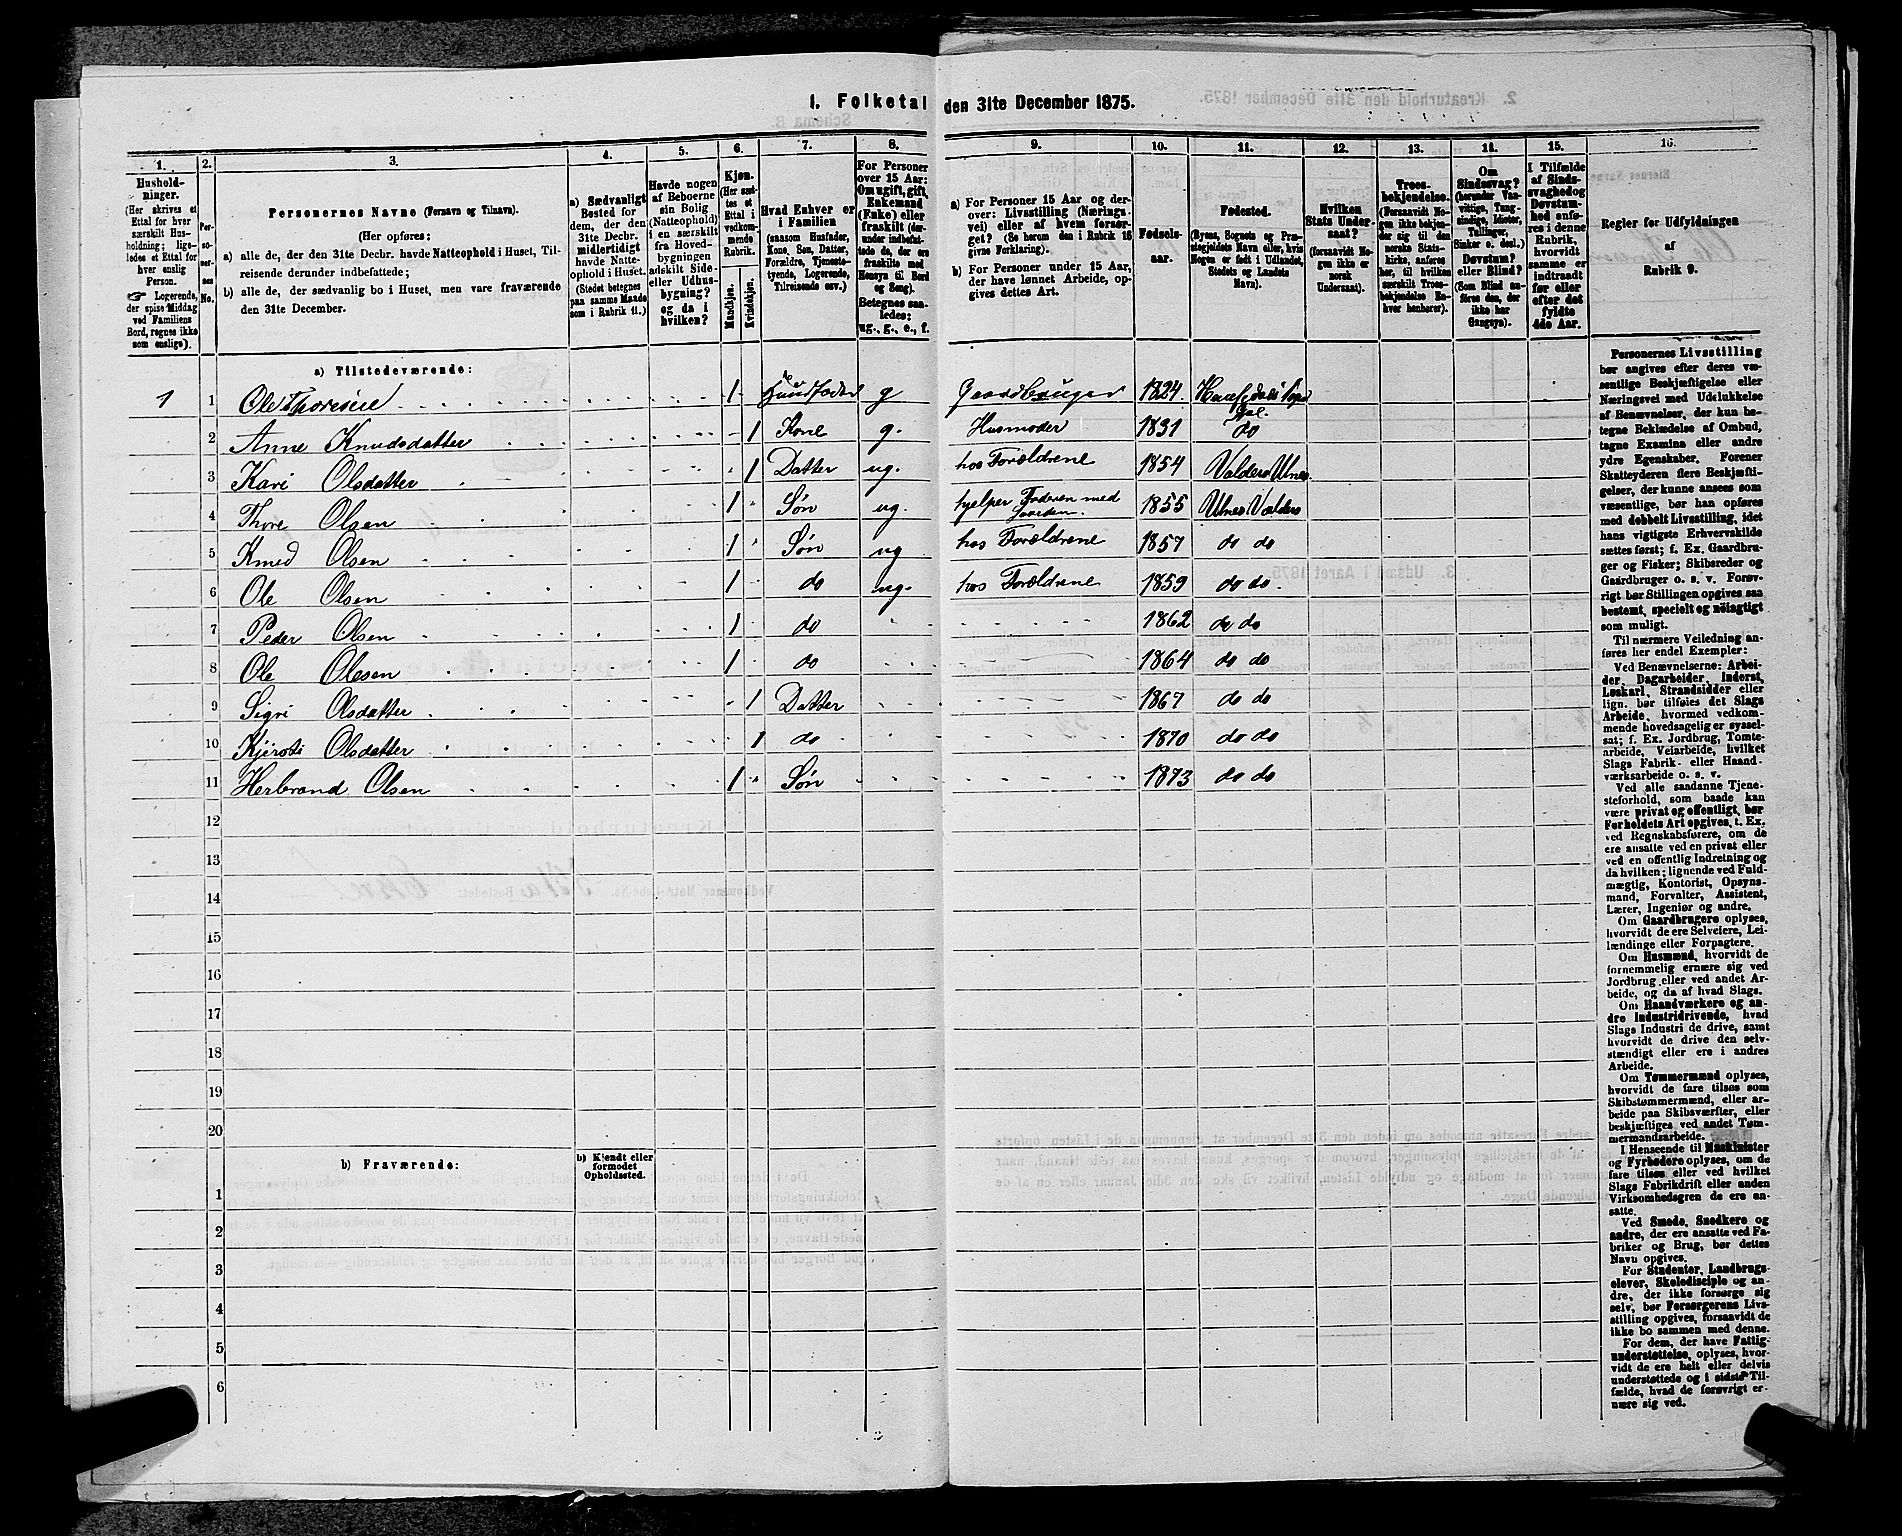 1. Folketal den 31te December 1875.
1. 2. 3. 4. 5. 6. 7. 8. 9. 10. 11. 12. 13. 14. 15. 16.
Hushold-
ninger.
(Her skrives et
Ettal for hver
særskilt Hus-
holdning; lige-
ledes et Ettal for
hver enslig
Person.
☞ Logerende,
der spise Middag
ved Familiens
Bord, regnes ikke
som enslige).
Per-
so-
ner-
nes
No.
Personernes Navne (Fornavn og Tilnavn).
(Her opføres:
a) alle de, der den 31te Decbr. havde Natteophold i Huset, Til-
reisende derunder indbefattede;
b) alle de, der sædvanlig bo i Huset, men vare fraværende
den 31te December.
a) Sædvanligt
Bosted for
dem, der den
31te Decbr.
midlertidigt
havde Natte-
ophold i Huset.
(Stedet betegnes
paa samme Maade
som i Rubrik 11.)
Havde nogen
af Beboerne
sin Bolig
(Natteophold)
i en særskilt
fra Hoved-
bygningen
adskilt Side-
eller Udhus-
bygning?
og da i
hvilken?
Kjøn.
(Her sæt-
tes et
Ettal i
vedkom-
mende
Rubrik.
Mandkjøn.
Kvindekjøn.
Hvad Enhver er
i Familien
(saasom Husfader,
Kone, Søn, Datter,
Forældre, Tjeneste-
tyende, Logerende,
Tilreisende osv.)
For Personer
over 15 Aar:
Om ugift, gift,
Enkemand
(Enke) eller
fraskilt (der-
under indbefat-
tede de, der ere
fraskilte med
Hensyn til Bord
og Seng).
Betegnes saa-
ledes:
ug., g., e., f.
a) For Personer 15 Aar og der-
over: Livsstilling (Nærings-
vei) eller af hvem forsør-
get? (Se herom den i Rubrik 16
givne Forklaring).
b) For Personer under 15 Aar,
der have lønnet Arbeide, op-
gives dettes Art.
Fødsels-
aar.
Fødested.
(Byens, Sognets og Præ-
stegjeldets Navn eller, hvis
Nogen er født i Udlandet,
Stedets og Landets
Navn).
Hvilken
Stats Under-
saat?
(forsaavidt No-
gen ikke er
norsk
Undersaat).
Troes-
bekjendelse.
(Forsaavidt No-
gen ikke beken-
der sig til den
norske Stats-
kirke, anføres
her, til hvilken
særskilt Troes-
bekjendelse En-
hver henhører).
Om
Sindssvag?
(herunder Van-
vittige, Tung-
sindige, Idioter,
Tullinger,
Sinker o. desl.)
Døvstum?
eller Blind?
(Som Blind an-
føres den, der
ikke har
Gangsyn).
I Tilfælde
af Sinds-
svaghed og
Døvstum-
hed anfø-
res i denne
Rubrik,
hvorvidt
samme er
indtraadt
før eller
efter det
fyldte
4de Aar.
Regler for Udfyldningen
af
Rubrik 9.
a) Tilstedeværende:
1 1 Ole Thoresen 1 Huusfader g Gaardbruger 1824. Gol.
2 Anne Knudsdatter 1 Kone g. Husmoder 1831 do
3 Kari Olsdatter 1 Datter ug. hos Forældrene 1854 Valders Ulnes
4 Thore Olsen 1 Søn ug. hjelper Faderen med Gaarden. 1855 Ulnes Valders
5 Knud Olsen 1 Søn ug hos Forældrene 1857 do do
6 Ole Olsen 1 do ug. hos Forældrene 1859 do do.
7 Peder Olsen 1 do 1862 do do
8 Ole Olesen 1 do 1864 do do
9 Sigri Olsdatter 1 Datter 1867 do do
10 Kjersti Olsdatter 1 do 1870 do do
11 Herbrand Olsen 1 Søn 1873 do do
12
13
14
15
16
17
18
19
20
b) Fraværende:
b) Kjendt eller
formodet
Opholdssted.
1
2
3
4
5
6
Personernes Livsstilling
bør angives efter deres væ-
sentlige Beskjæftigelse eller
Næringsvei med Udelukkelse
af Benævnelser, der kun be-
tegne Beklædelse af Ombud,
tagne Examina eller andre
ydre Egenskaber. Forener
Skatteyderen flere Beskjæfti-
gelser, der kunne ansees som
væsentlige, bør han opføres
med dobbelt Livsstilling, idet
hans vigtigste Erhvervskilde
sættes først; f. Ex. Gaardbru-
ger og Fisker; Skibsreder og
Gaardbruger o. s. v. Forøv-
rigt bør Stillingen opgives saa
bestemt, specielt og nøiagtigt
som muligt.
Til nærmere Veiledning an-
føres her endel Exempler:
Ved Benævnelserne: Arbei-
der, Dagarbeider, Inderst,
Løskarl, Strandsidder eller
lign. bør tilføies det Slags
Arbeide, hvormed vedkom-
mende hovedsagelig er syssel-
sat; f. Ex. Jordbrug, Tomte-
arbeide, Veiarbeide, hvilket
Slags Fabrik- eller Haand-
værksarbeide o. s. v.
Ved alle saadanne Tjene-
steforhold, som baade kan
være privat og offentligt, bør
Forholdets Art opgives, t. Ex.
ved Regnskabsførere, om de
ere ansatte ved en privat eller
ved en offentlig Indretning og
da hvilken; lignende ved Fuld-
mægtig, Kontorist, Opsyns-
mand, Forvalter, Assistent,
Lærer, Ingeniør og andre.
Om Gaardbrugere oplyses,
hvorvidt de ere Selveiere, Lei-
lændinge eller Forpagtere.
Om Husmænd, hvorvidt de
fornemmelig ernære sig ved
Jordbrug eller ved andet Ar-
beide, og da af hvad Slags.
Om Haandværkere og an-
dre Industridrivende, hvad
Slags Industri de drive, samt
hvorvidt de drive den selv-
stændigt eller ere i andres
Arbeide.
Om Tømmermænd oplyses,
hvorvidt de fare tilsøs som
Skibstømmermænd, eller ar-
beide paa Skibsværfter, eller
beskjæftiges ved andet Tøm-
mermandsarbeide.
I Henseende til Maskinister
og Fyrbødere oplyses, om de
fare tilsøs eller ved hvilket
Slags Fabrikdrift eller anden
Virksomhedsgren de ere an-
satte.
Ved Smede, Snedkere og
andre, der ere ansatte ved Fa-
briker og Brug, bør dettes
Navn opgives.
For Studenter, Landbrugs-
elever, Skoledisciple og an-
dre, der ikke forsørge sig
selv, bør Forsørgerens Livs-
stilling opgives, forsaavidt de
ikke bo sammen med denne.
For dem, der have Fattig-
understøttelse, oplyses, hvor-
vidt de ere helt eller delvis
understøttede og i sidste Til-
fælde, hvad de forøvrigt er-
nære sig ved.